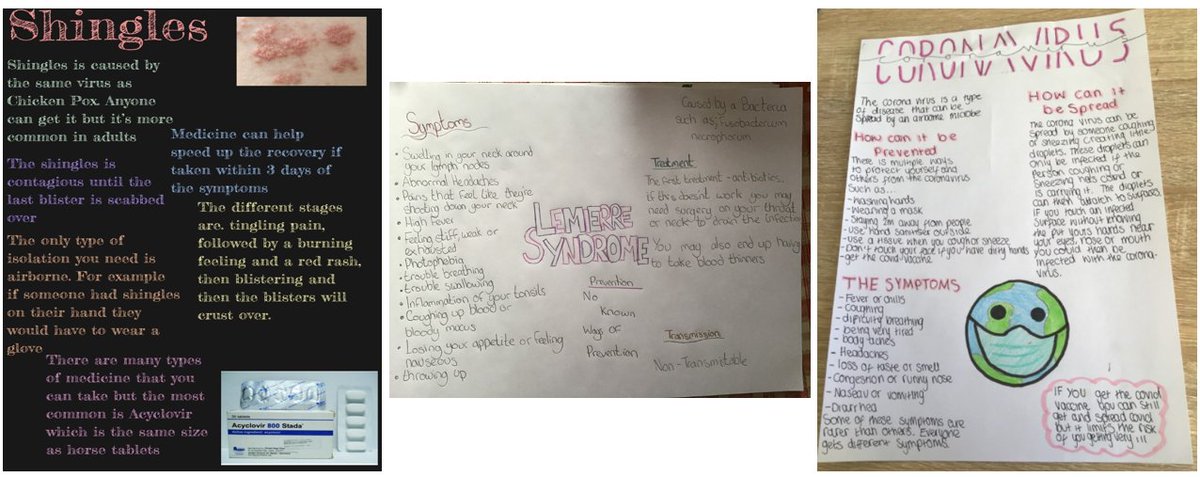 Shingles
Shingles is caused by
the same virus as
Chicken Pox. Anyone
can get it but it's more
common in adults
Medicine can help
speed up the recovery if
taken within 3 days of
the symptoms
The shingles is
contagious until the
last blister is scabbed
over
The different stages
are, tingling pain,
followed by a burning
feeling and a red rash,
then blistering and
then the blisters will
crust over.
The only type of
isolation you need is
airborne. For example
if someone had shingles
on their hand they
would have to wear a
glove
There are many types
of medicine that you
can take but the most
common is Acyclovir
which is the same size
as horse tablets
Acyclovir 800 Stada
Symptoms
• Swelling in your neck around
your lymph nodes
• Abnormal Headaches
• Pains that feel like they're
shooting down your neck
• High Fever
• Feeling stiff, weak or
exhausted
• Photophobia
• trouble breathing
• trouble swallowing
• Inflammation of your tonsils
• Coughing up blood or
bloody mucus
• Losing your appetite or feeling
nauseous
• throwing up
LEMIERRE
SYNDROME
Caused by a Bacteria
such as, Fusobacterium
necrophorum
Treatment
The first treatment - antibiotics.
if this doesn't work you may
need surgery on your throat
or neck to drain the infection
You may also end up having
to take blood thinners
Prevention
No
Known
Ways of
Prevention
Transmission
Non-Transmittable
CORONAVIRUS
coronavirus
The corona virus is a type
of disease that can be
spread by an airborne microbe
HOW can it be
Prevented
There is multiple ways
to protect yourself and
others from the coronavirus
Such as...
- washing hands
- Wearing a mask
- Staying 2m away from people
- use hand sanitiser outside
- use a tissue when you cough or sneeze
- Don't touch your face if you have dirty hands
- get the covid-vaccine
THE SYMPTOMS
- Fever or chills
- Coughing
- difficulty breathing
- being very tired
- body aches
- Headaches
- loss of taste or smell
- Congestion or runny nose
- Nasea or vomiting
- Diarrhea
Some of these symptoms are
rarer than others. Everyone
gets different symptoms.
HOW can it
be Spread
The corona virus can be
Spread by someone coughing
or sneezing creating little
droplets. These droplets can
only be infected if the
Person coughing or
Sneezing has covid or
is carrying it. The droplets
can then attatch to surfaces.
IF you touch an infected
Surface without knowing
the put yours hands near
your eyes, nose or mouth
you could then become
infected with the corona-
virus.
IF YOU get the covid
vaccine you can still
get and spread covid
but it limits the risk
of you getting very ill